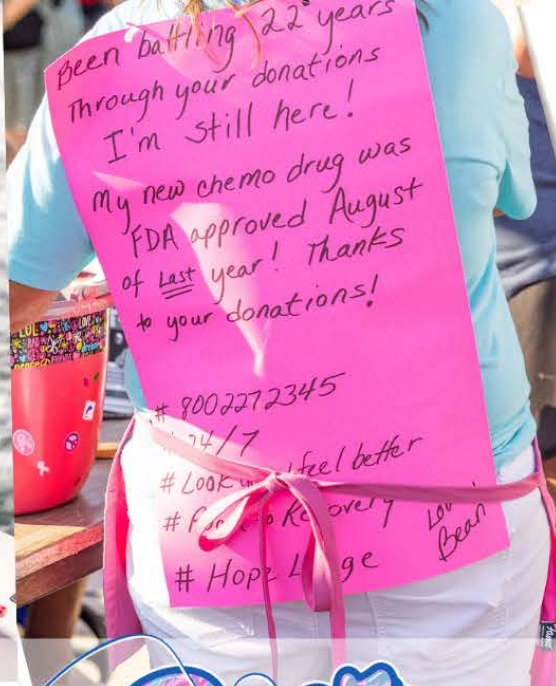 Been battling 22 years
Through your donations
I'm still here!
My new chemo drug was
FDA approved August
of Last year! Thanks
to your donations!
# 8002272345
# 24/7
# Look feel better
# to Recovery
# Hope
Love
Bean
LOVE